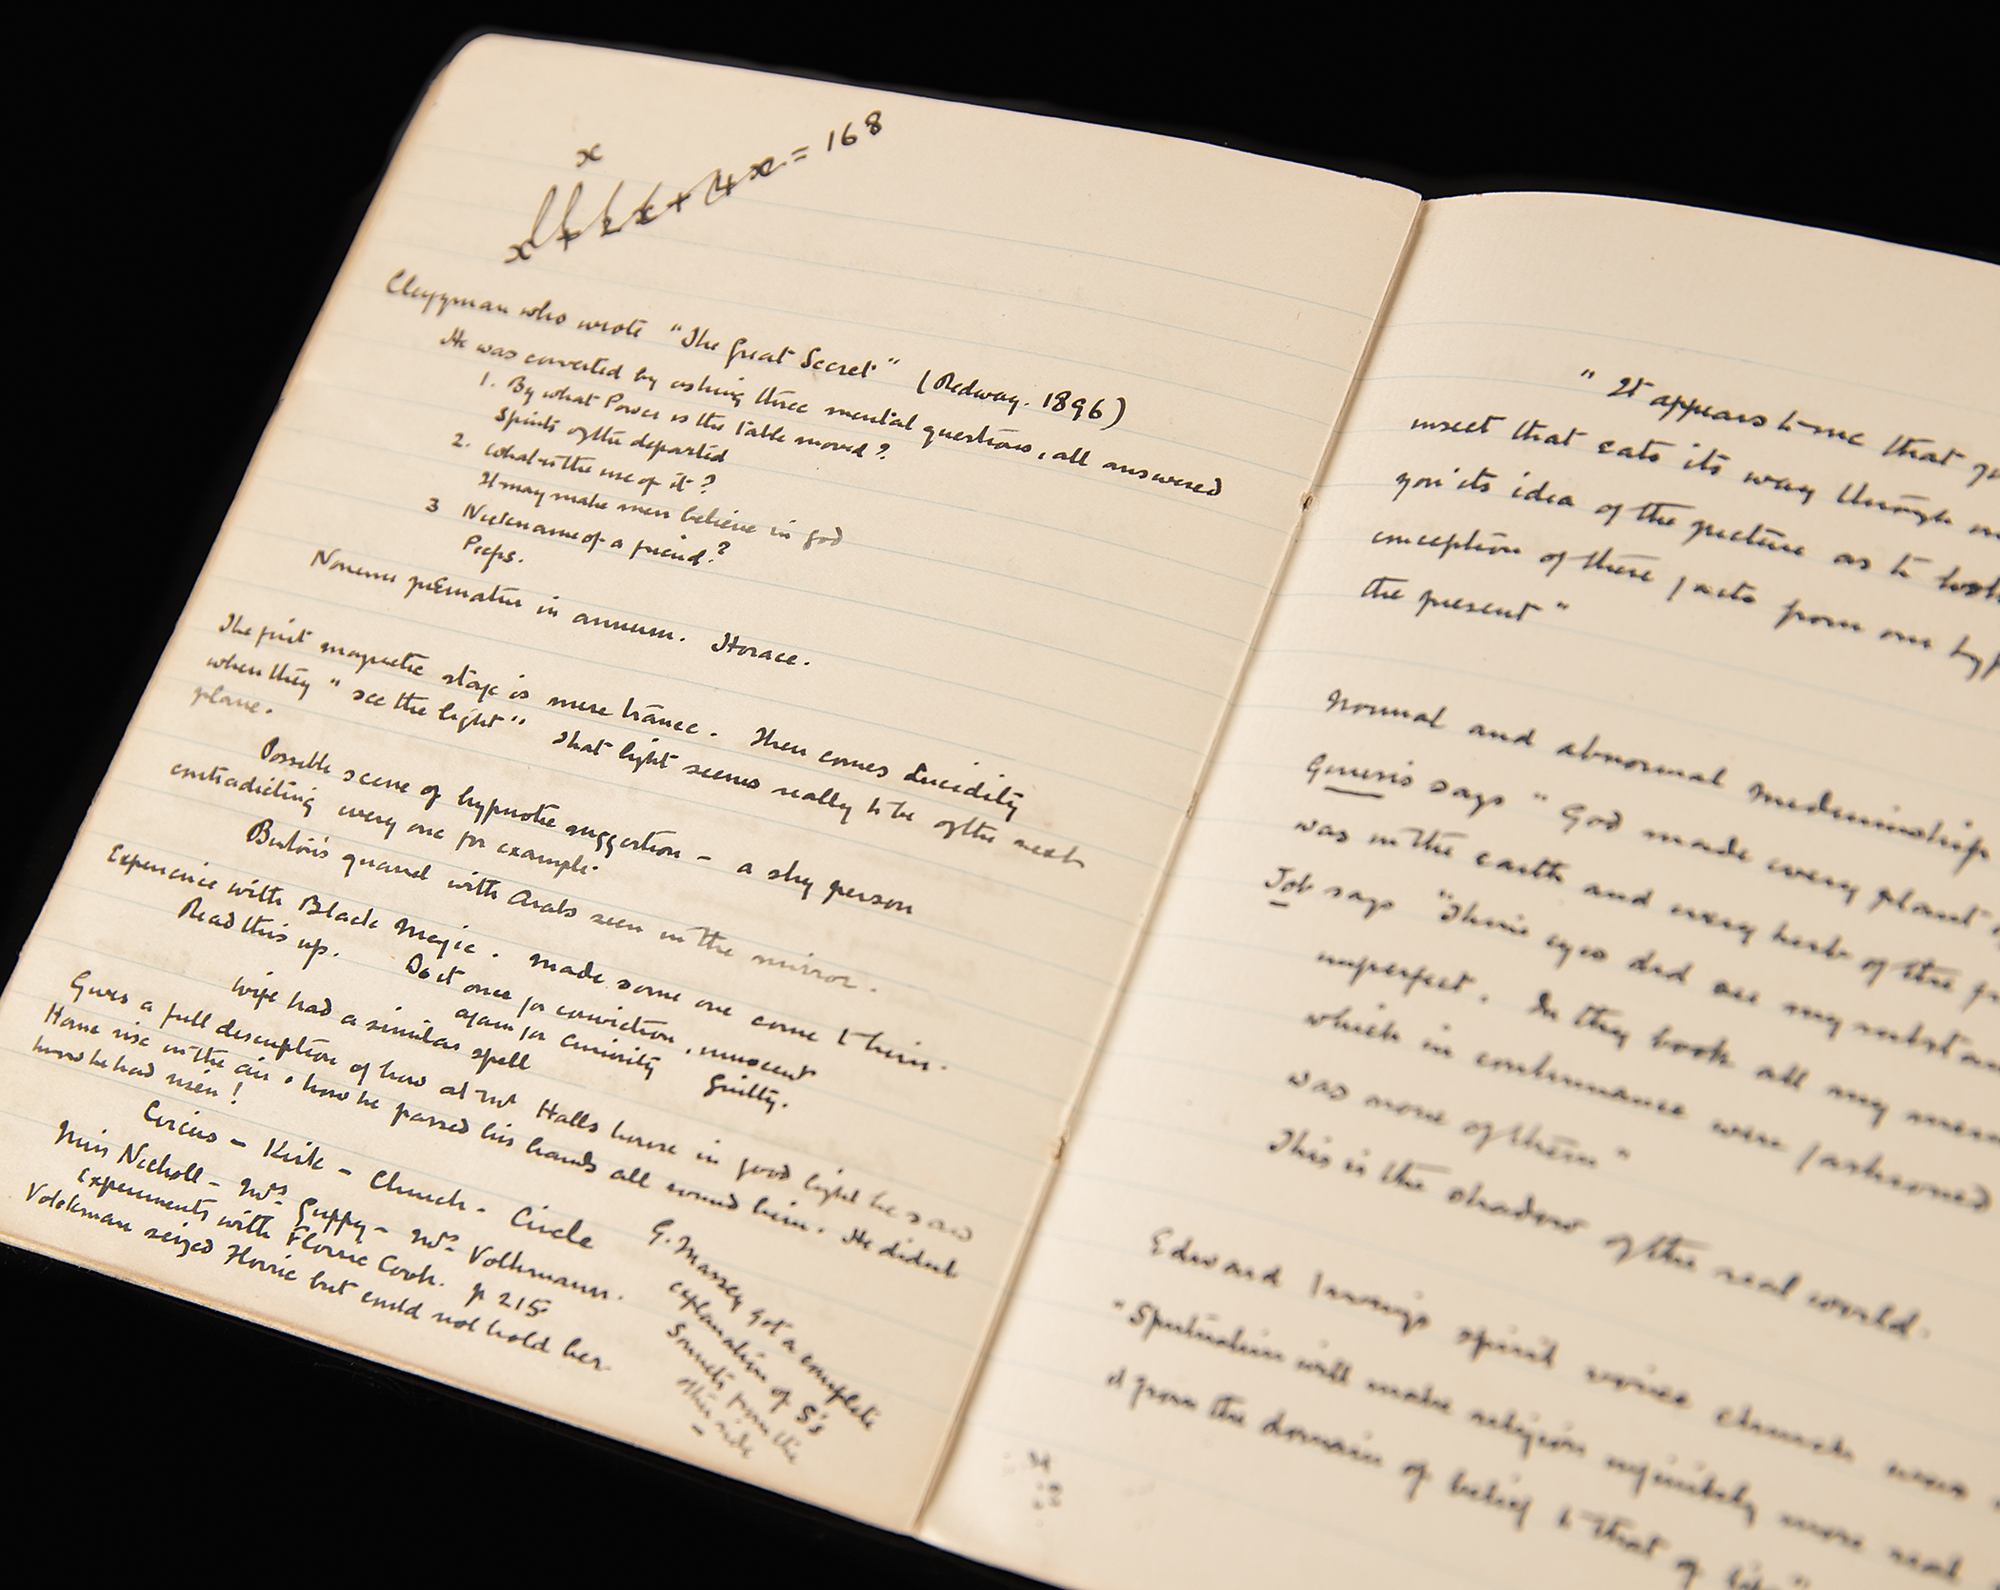 x
x + 2x + 4x = 168
Clergyman who wrote "The Great Secret" (Redway. 1896)
He was converted by asking three mental questions, all answered
1. By what Power is the Table moved?
Spirits of the departed
2. What is the use of it?
It may make men believe in God
3 Nickname of a friend?
Peeps.
Nonum prematur in annum. Horace.
The first magnetic stage is mere trance. Then comes Lucidity
when they "see the light" That light seems really to be of the next
plane.
Possible scene of hypnotic suggestion - a shy person
contradicting every one for example.
Burton's quarrel with Arabs seen in the mirror.
Experience with Black Magic. Made some one come to him.
Read this up. Do it once for conviction, innocent
again for curiosity Guilty.
Wife had a similar spell
Gives a full description of how at Mrs Halls house in good light he saw
Home rise in the air & how he passed his hands all round him. He didnt
know he had risen!
Circus - Kirk - Church - Circle
Miss Nicholl - Mrs Guppy - Mrs Volkmann.
Experiments with Florrie Cook. p 215
Volckman seized Florrie but could not hold her
G. Massey got a complete
explanation of S's
Sonnets from the
other side
"It appears to me that
insect that eats its way through
you its idea of the picture as to
conception of these facts from our
the present"
Normal and abnormal mediumship
Genesis says "God made every plant
was in the earth and every herb of the
Job says "Thine eyes did see my
imperfect. In thy book all my
which in continuance were fashioned
was none of them"
This is the shadow of the real world.
Edward Irvings spirit voice church was
"Spiritualism will make religion infinitely more real
it from the domain of belief to that of